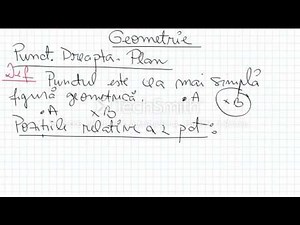 Geometrie
Punct. Dreapta. Plan
Def Punctul este cea mai simplă
figură geometrică. • A × B
• A × B
Pozițiile relative a 2 pct :